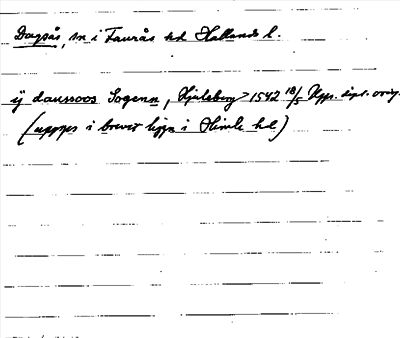 Dagsås, sn i Faurås hd Hallands l.
ij dausoos Sogenn, Hjulsberg > 1542 18/5 Upps. dipl. orig.
(uppges i brevet ligga i Himle hd)